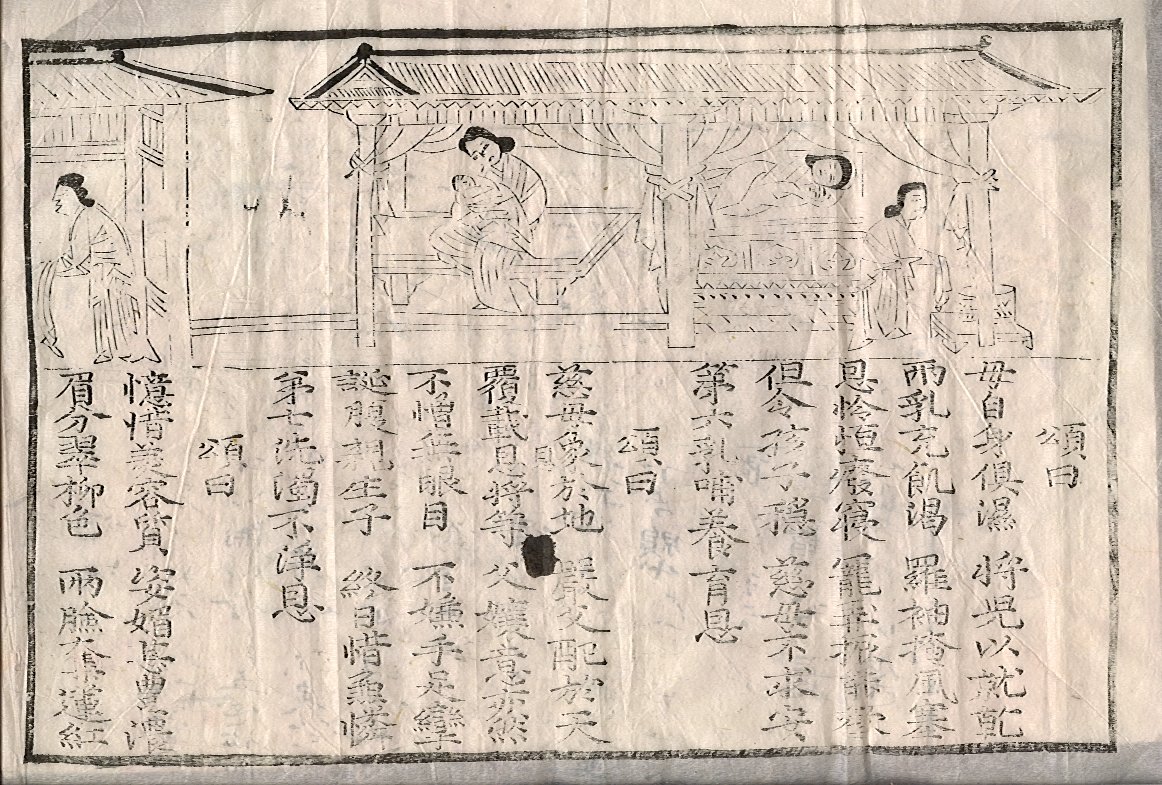 頌曰
母自身俱濕 將児以就乾
兩乳充飢渴 羅袖掩風寒
恩怜恒廢寢 寵弄振能歡
但令孩子穩 慈母不求安
第六乳哺養育恩
頌曰
慈母象於地 嚴父配於天
覆載恩將等 父孃意亦然
不憎無眼目 不嫌手足攣
誕腹親生子 終日惜兼憐
第七洗濁不淨恩
頌曰
憶惜美容質 姿媚甚豊濃
眉分翠柳色 兩臉奪蓮紅